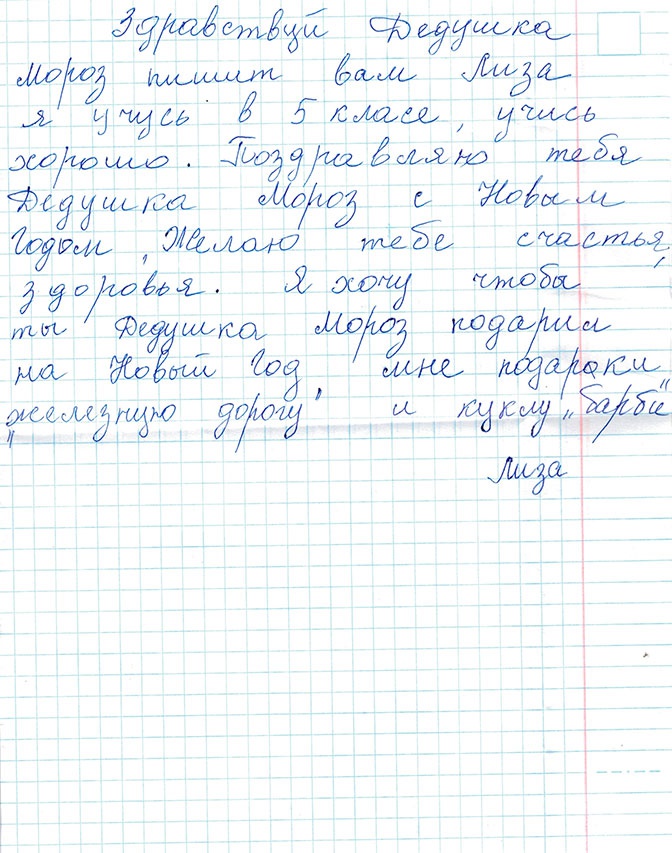 Здравствуй Дедушка
Мороз пишит вам Лиза
я учусь в 5 класе, учись
хорошо. Поздравляю тебя
Дедушка Мороз с Новым
Годом, Желаю тебе счастья,
здоровья. Я хочу чтобы
ты Дедушка Мороз подарил
на Новый Год мне подараки
„железную дорогу" и куклу „барби"
Лиза